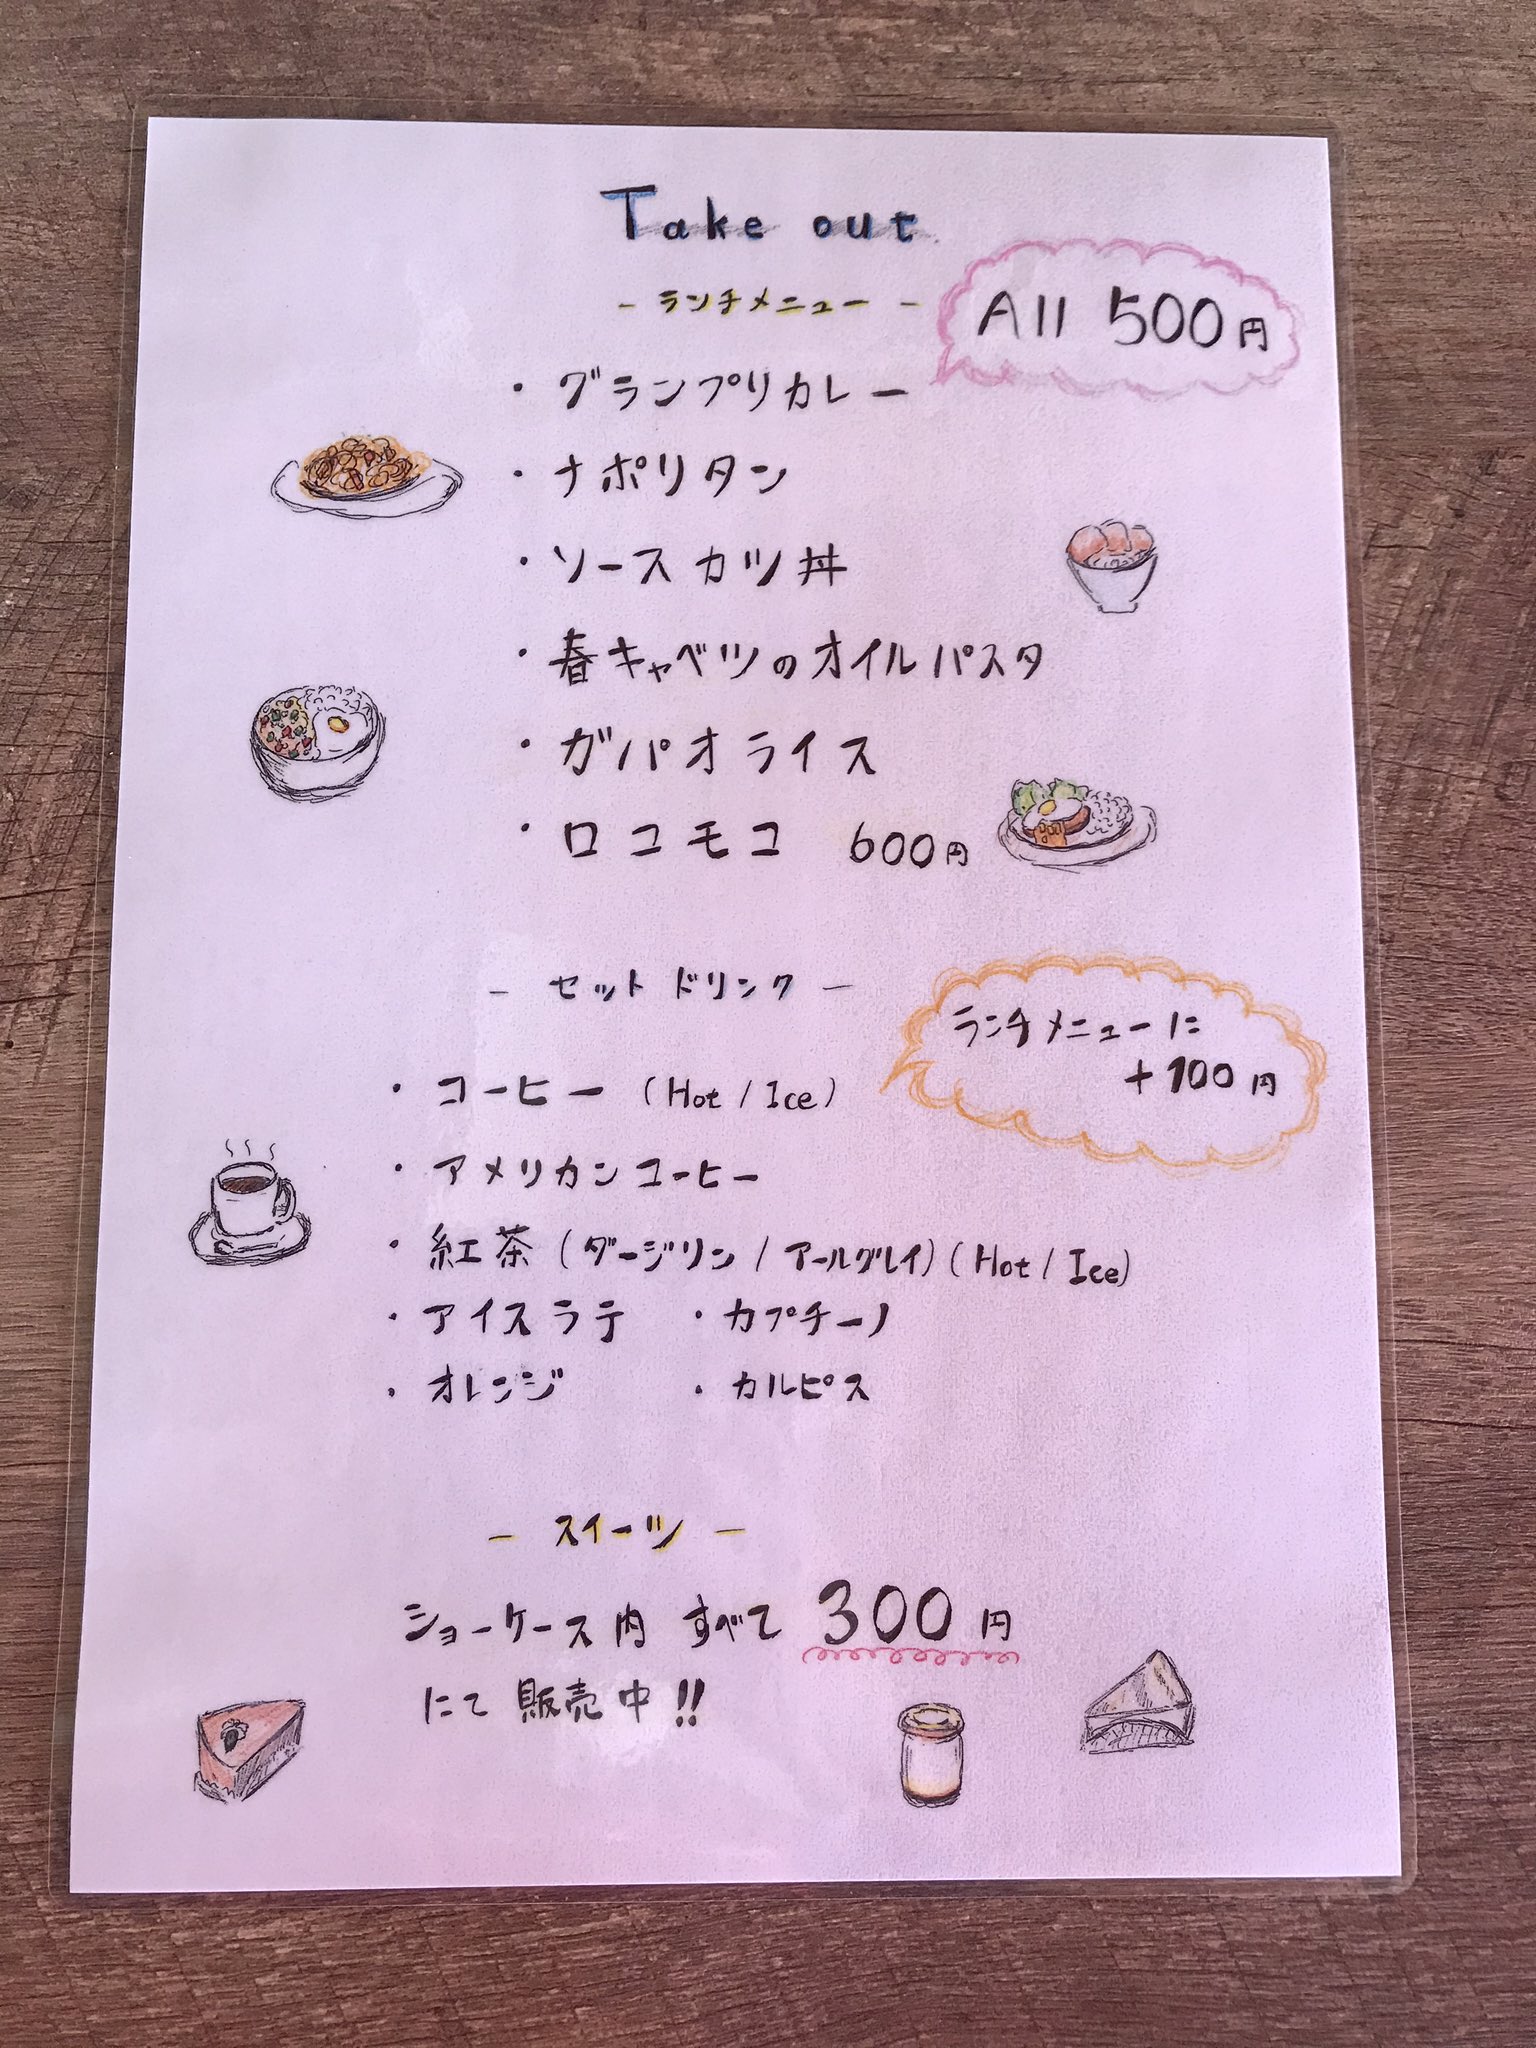 Take out
- ランチメニュー -
All 500円
・グランプリカレー
・ナポリタン
・ソースカツ丼
・春キャベツのオイルパスタ
・ガパオライス
・ロコモコ 600円
- セットドリンク -
ランチメニューに
+100円
・コーヒー (Hot / Ice)
・アメリカンコーヒー
・紅茶 (ダージリン / アールグレイ) (Hot / Ice)
・アイスラテ ・カプチーノ
・オレンジ ・カルピス
- スイーツ -
ショーケース内 すべて 300円
にて販売中!!